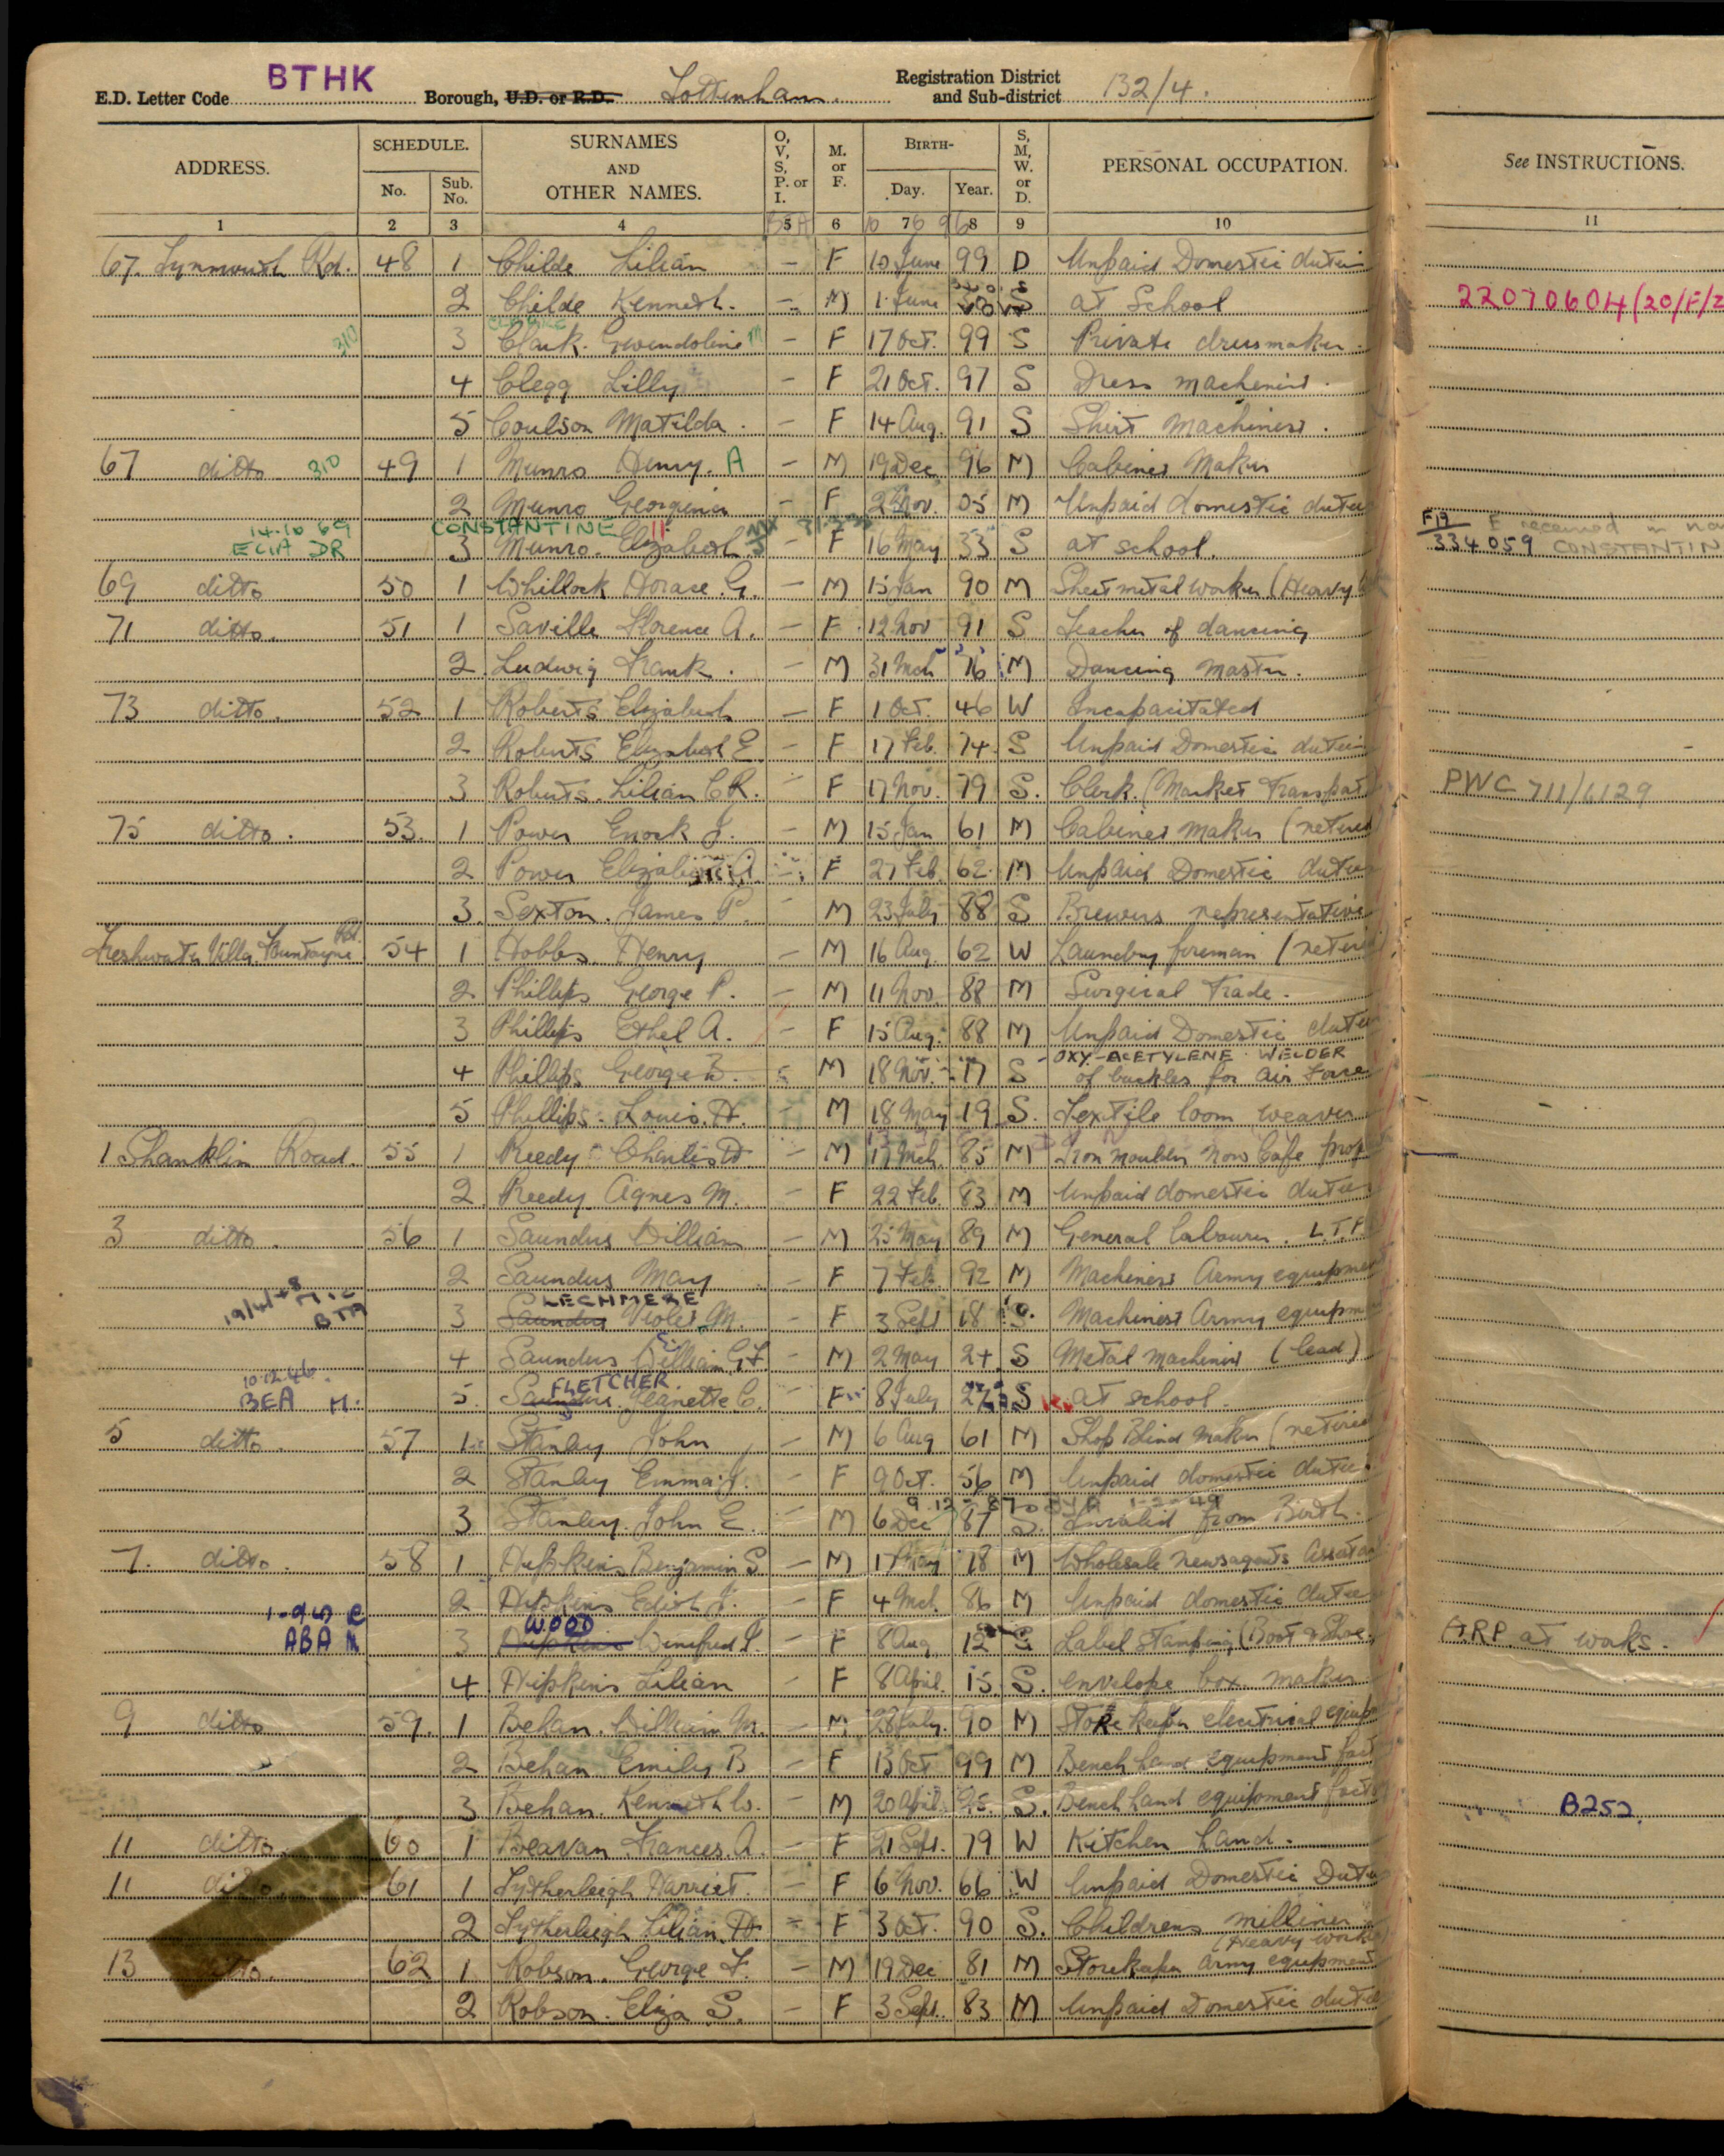 BTHK
E.D. Letter Code Borough, U.D. or R.D. Tottenham Registration District and Sub-district 132/4.
ADDRESS. SCHEDULE. No. Sub. No. SURNAMES AND OTHER NAMES. O, V, S, P. or I. M. or F. BIRTH- Day. Year. S, M, W. or D. PERSONAL OCCUPATION. See INSTRUCTIONS.
1 2 3 4 5 6 7 8 9 10 11
67. Lynmouth Rd. 48 1 Childe Lilian – F 10 June 99 D Unpaid Domestic duties
2 Childe Kenneth. – M 1 June S at School 22070604(20/F/2
310 3 Clark. Gwendoline M – F 17 Oct. 99 S Private dressmaker.
4 Clegg Lilly – F 21 Oct. 97 S Dress machinist.
5 Coulson Matilda. – F 14 Aug. 91 S Shirt Machinist.
67 ditto 310 49 1 Munro Henry. A – M 19 Dec 96 M Cabinet Maker
2 Munro Georgina – F 2 Nov. 05 M Unpaid domestic duties
14.10.69 CONSTANTINE
ECIA DR 3 Munro. Elizabeth – F 16 May 33 S at school. 334059 CONSTANTIN
69 ditto 50 1 Whillock Horace. G. – M 15 Jan 90 M Sheet metal worker (Heavy
71 ditto. 51 1 Saville Florence A. – F 12 Nov 91 S Teacher of dancing
2 Ludwig Frank. – M 31 Mch 76 M Dancing master.
73 ditto. 52 1 Roberts Elizabeth – F 1 Oct. 46 W Incapacitated
2 Roberts Elizabeth E – F 17 Feb. 74 S Unpaid Domestic duties
3 Roberts. Lilian C R. – F 17 Nov. 79 S. Clerk. (Market Transport PWC 711/6129
75 ditto. 53. 1 Power Enock J. – M 15 Jan 61 M Cabinet maker (retired
2 Power Elizabeth A – F 21 Feb. 62 M Unpaid Domestic duties
3. Sexton. James P. M 23 July 88 S Brewers representative
Freshwater Villa. Fountayne Rd. 54 1 Hobbs. Henry – M 16 Aug. 62 W Laundry foreman (retired)
2 Phillips George P. – M 11 Nov 88 M Surgical Trade.
3 Phillips Ethel A. – F 15 Aug. 88 M Unpaid Domestic duties
OXY-ACETYLENE WELDER
4 Phillips George M 18 Nov. 17 S of buckles for Air Force
5 Phillips. Louis. H. – M 18 May 19 S. Textile loom weaver
1 Shanklin Road. 55 1 Reedy Charles H. – M 17 Mch. 85 M Iron moulder now Cafe prop
2. Reedy Agnes M. – F 22 Feb. 83 M Unpaid domestic duties
3 ditto. 56 1 Saunders William – M 25 May 89 M General labourer. L.T.P.
2 Saunders May – F 7 Feb. 92 M Machinist Army equipment
LECHMERE
3 Saunders Violet M. – F 3 Sept 18 S. Machinist Army equipm
4 Saunders William G F – M 2 May 24 S Metal machinist (lead)
10.12.46. FLETCHER
BEA M. 5. Saunders. Jeanette C. F 8 July S at school.
5 ditto. 57 1 Stanley John – M 6 Aug 61 M Shop Blind maker (retired
2 Stanley Emma J. – F 9 Oct. 56 M Unpaid domestic duties.
3 Stanley. John E. – M 6 Dec 87 S. Invalid from Birth.
7. ditto. 58 1 Hipkins Benjamin S – M 17 May 78 M Wholesale newsagents Assistant
2 Hipkins Edith J. – F 4 Mch. 86 M Unpaid domestic duties
WOOD
ABA M 3 Hipkins Winifred F. – F 8 Aug 12 S Label stamping (Boot & Shoe. A.R.P. at works.
4 Hipkins Lilian – F 8 April. 15 S. envelope box maker
9 ditto 59. 1 Behan. William M. – M 28 July. 90 M Store keeper electrical equip
2 Behan Emily B – F 13 Oct 99 M Bench hand equipment fact
3 Behan. Kenneth W. – M 20 April 25. S. Bench hand equipment fact B252.
11 ditto 60 1 Beavan Frances. A. – F 21 Sept. 79 W Kitchen hand.
11 ditto 61 1 Lytherleigh Harriet. – F 6 Nov. 66 W Unpaid Domestic Duties
2 Lytherleigh Lilian. H – F 3 Oct. 90 S. Childrens milliner
(Heavy worker)
13 ditto. 62 1 Robson. George F. – M 19 Dec 81 M Storekeeper Army equipment
2 Robson. Eliza S. – F 3 Sept. 83 M Unpaid Domestic duties